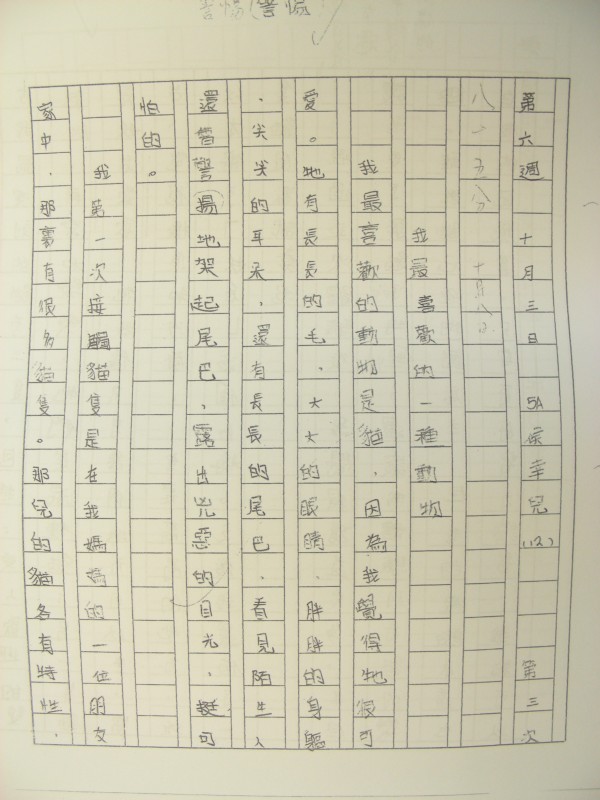 警惕(警惕
第六週 十月三日 5A 幸兒(12) 第三次
我最喜歡的一種動物
我最喜歡的動物是貓，因為我覺得牠很可
愛。牠有長長的毛、大大的眼睛、胖胖的身軀
、尖尖的耳朵，還有長長的尾巴，看見陌生人
還會警揚地架起尾巴，露出兇惡的目光，挺可
怕的。
我第一次接觸貓隻是在我媽媽的一位朋友
家中，那裏有很多貓隻。那兒的貓各有特性，